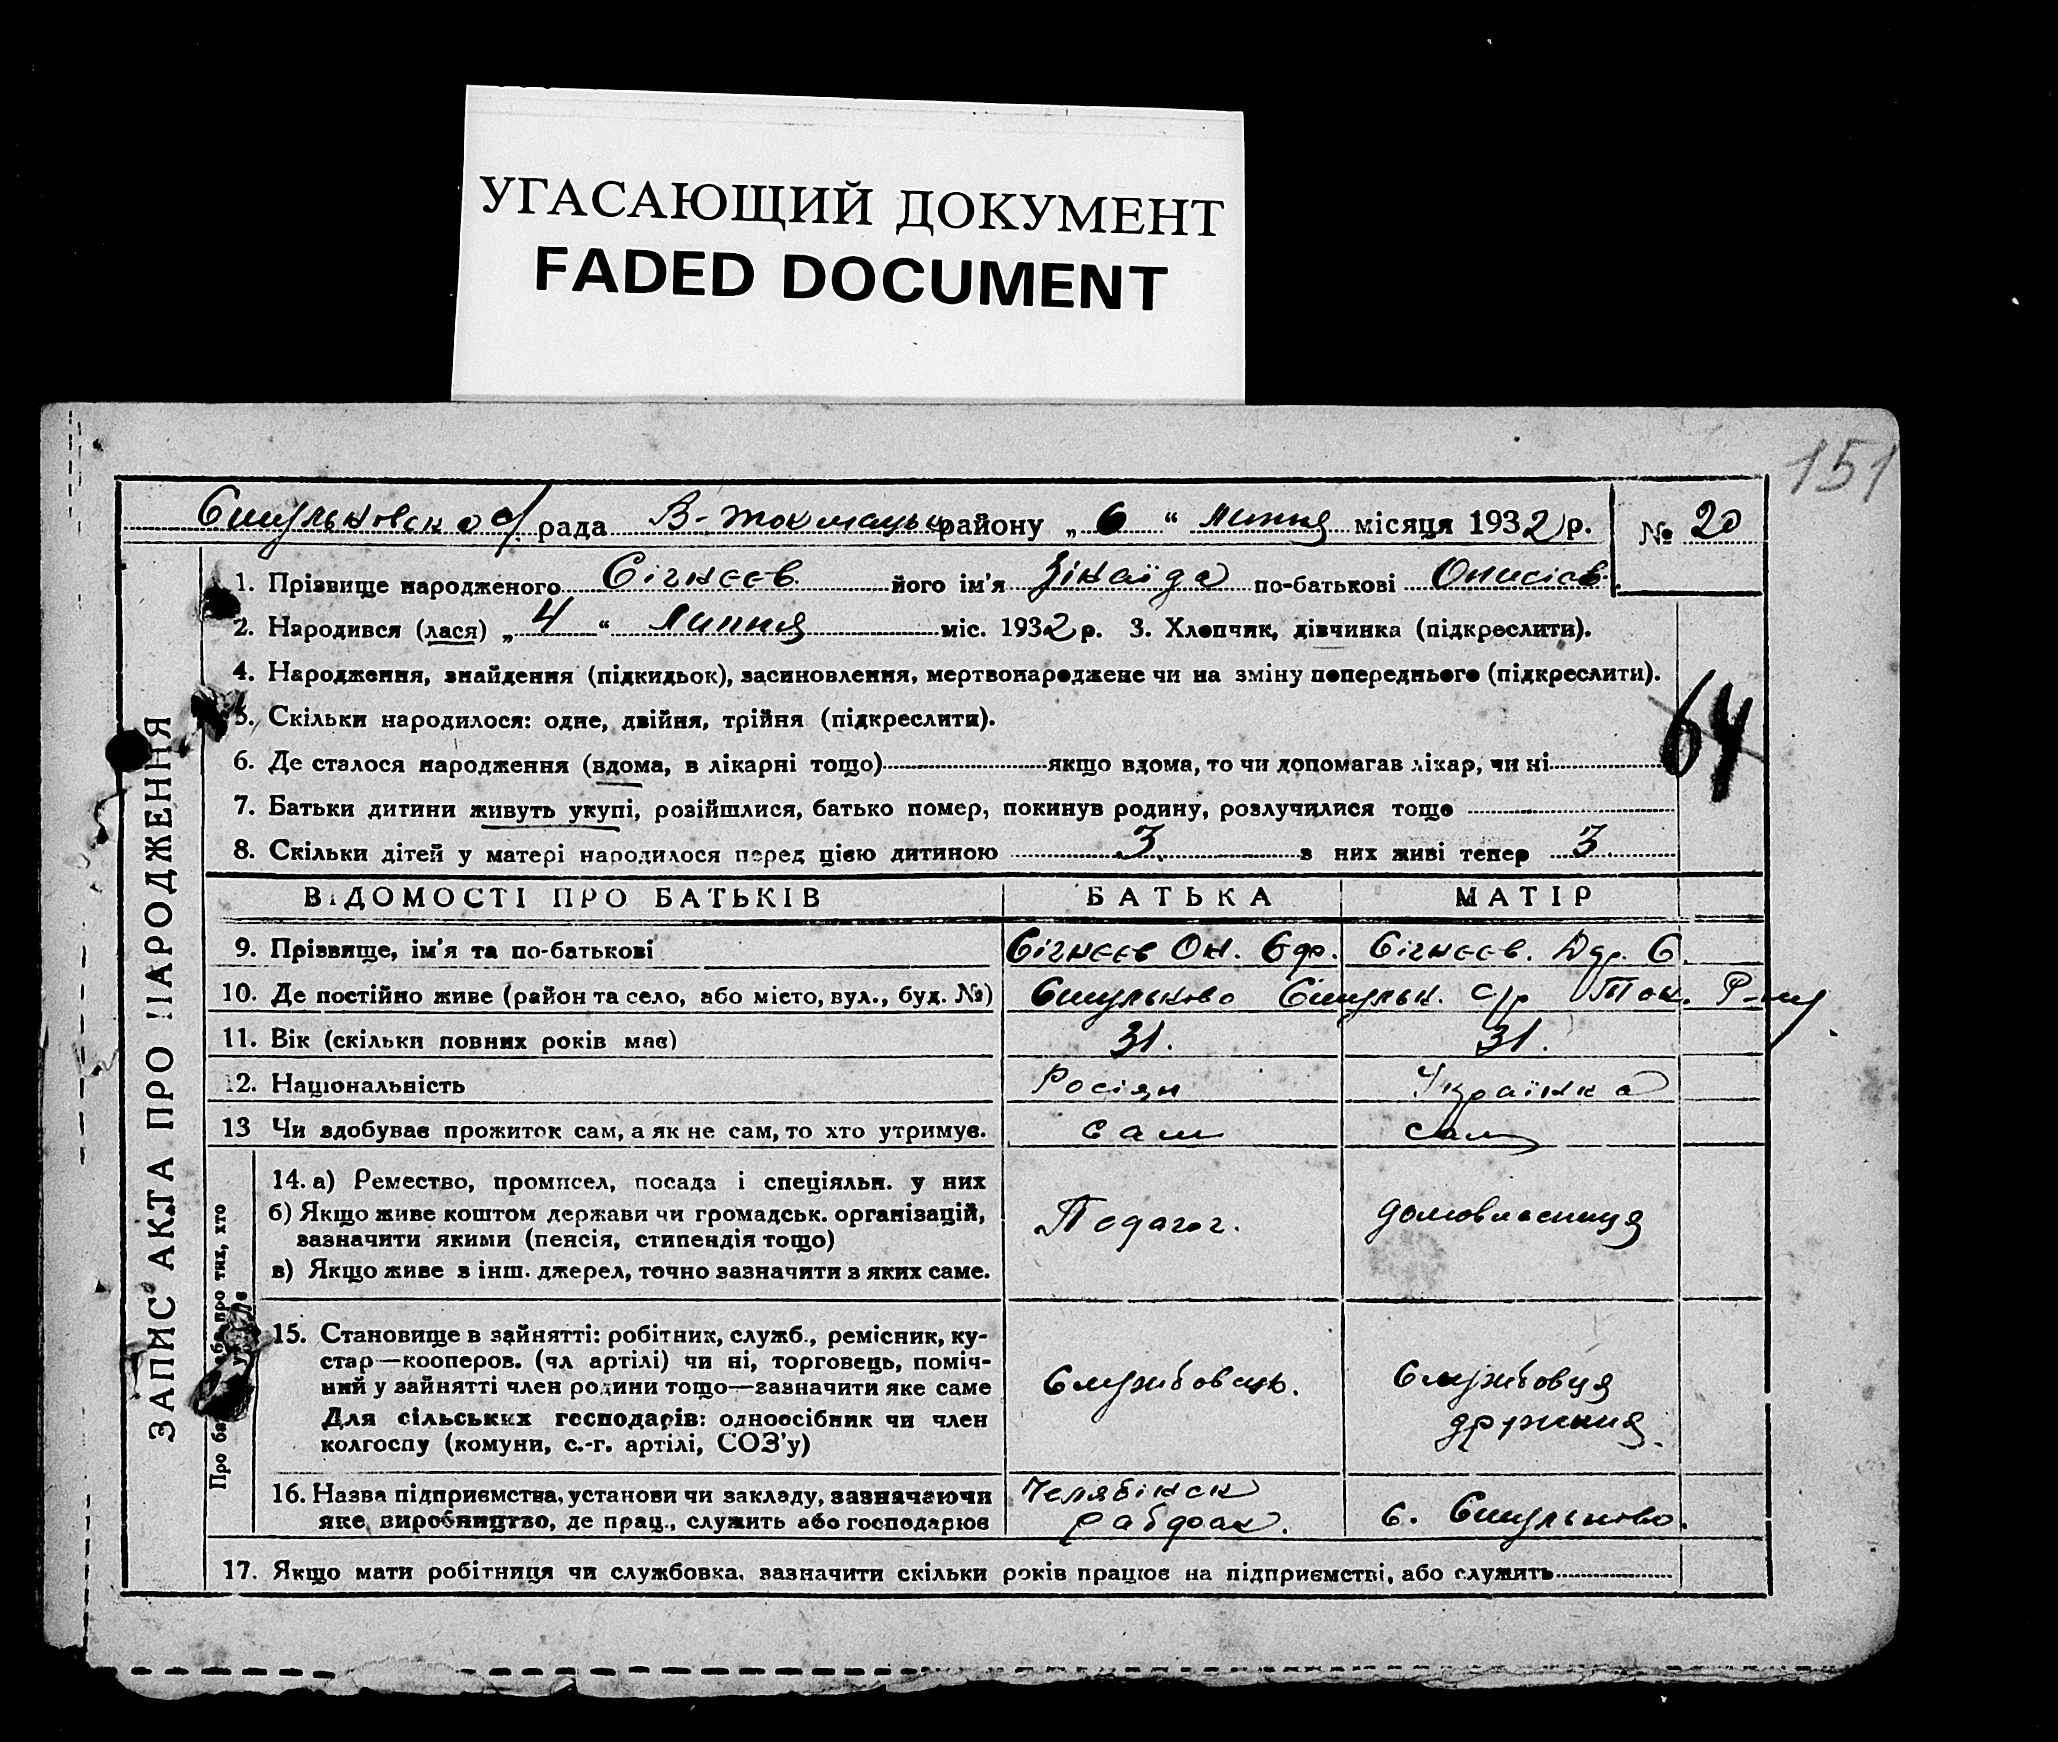 УГАСАЮЩИЙ ДОКУМЕНТ
FADED DOCUMENT
151
рада В-Токмацьк району „ 6 “ Липня місяця 1932 р. № 20
ЗАПИС АКТА ПРО НАРОДЖЕННЯ
1. Прізвище народженого Сігнєєв його ім'я Зінаїда по-батькові Онисієв.
2. Народився (лася) „ 4 “ Липня міс. 1932 р. 3. Хлопчик, дівчинка (підкреслити).
4. Народження, знайдення (підкидьок), засиновлення, мертвонароджене чи на зміну попереднього (підкреслити).
64
5. Скільки народилося: одне, двійня, трійня (підкреслити).
6. Де сталося народження (вдома, в лікарні тощо) якщо вдома, то чи допомагав лікар, чи ні
7. Батьки дитини живуть укупі, розійшлися, батько помер, покинув родину, розлучилися тоще
8. Скільки дітей у матері народилося перед цією дитиною 3 з них живі тепер 3
ВІДОМОСТІ ПРО БАТЬКІВ БАТЬКА МАТІР
9. Прізвище, ім'я та по-батькові Сігнєєв Он. Сігнєєв.
10. Де постійно живе (район та село, або місто, вул., буд. №) с/р Ток. Р-ну
11. Вік (скільки повних років має) 31. 31.
12. Національність Росіян Українка
13 Чи здобуває прожиток сам, а як не сам, то хто утримує. Сам Сам
Про тих, хто
14. а) Ремество, промисел, посада і спеціяльн. у них
б) Якщо живе коштом держави чи громадськ. організацій,
зазначити якими (пенсія, стипендія тощо)
в) Якщо живе з інш. джерел, точно зазначити з яких саме.
Педагог. Домовласниця
15. Становище в зайнятті: робітник, служб., ремісник, ку-
стар—кооперов. (чл артілі) чи ні, торговець, поміч-
ний у зайнятті член родини тощо—зазначити яке саме
Для сільських господарів: одноосібник чи член
колгоспу (комуни, с.-г. артілі, СОЗ'у)
Службовець. Службовця
дружина.
16. Назва підприємства, установи чи закладу, зазначаючи Челябінск
яке виробництво, де прац., служить або господарює Рабфак. с.
17. Якщо мати робітниця чи службовка, зазначити скільки років працює на підприємстві, або служить